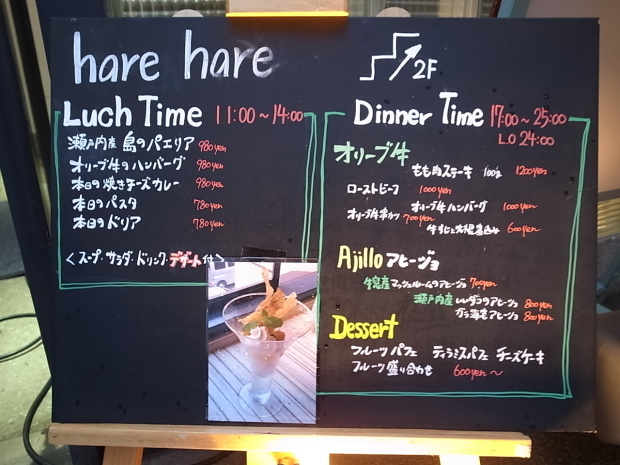 hare hare
2F
Luch Time 11:00~14:00
瀬戸内産 島のパエリア 980yen
オリーブ牛のハンバーグ 980yen
本日の焼きチーズカレー 980yen
本日のパスタ 780yen
本日のドリア 780yen
<スープ・サラダ・ドリンク・デザート付>
Dinner Time 17:00~25:00
L.O 24:00
オリーブ牛
もも肉ステーキ 100g 1200yen
ローストビーフ 1000yen
オリーブ牛ハンバーグ 1000yen
オリーブ牛串カツ 700yen
牛すじと大根煮込み 600yen
Ajillo アヒージョ
生窓産マッシュルームのアヒージョ 700yen
瀬戸内産 レンダコのアヒージョ 800yen
ガラ海老アヒージョ 800yen
Dessert
フルーツパフェ ティラミスパフェ チーズケーキ
フルーツ盛り合わせ 600yen~